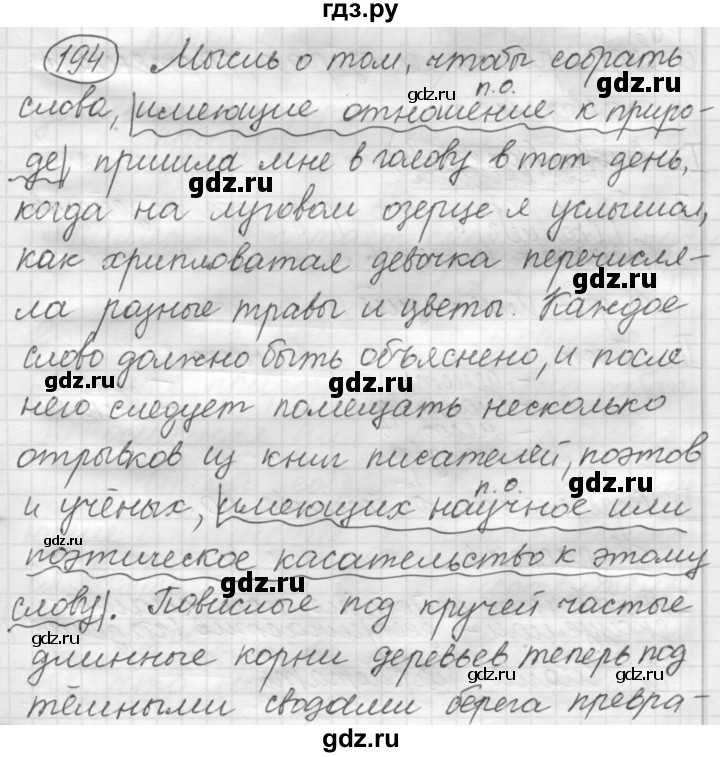 гдз.ру
194 Мысль о том, чтобы собрать
п.о.
слова, имеющие отношение к приро-
де, пришла мне в голову в тот день,
когда на луговом озерце я услышал,
как хрипловатая девочка перечисля-
ла разные травы и цветы. Каждое
слово должно быть объяснено, и после
него следует помещать несколько
отрывков из книг писателей, поэтов
п.о.
и учёных, имеющих научное или
поэтическое касательство к этому
слову. Повислые под кручей частые
длинные корни деревьев теперь под
тёмными сводами берега превра-
gdz.ru
gdz.ru
gdz.ru
gdz.ru
gdz.ru
gdz.ru
gdz.ru
gdz.ru
gdz.ru
gdz.ru
gdz.ru
gdz.ru
gdz.ru
gdz.ru